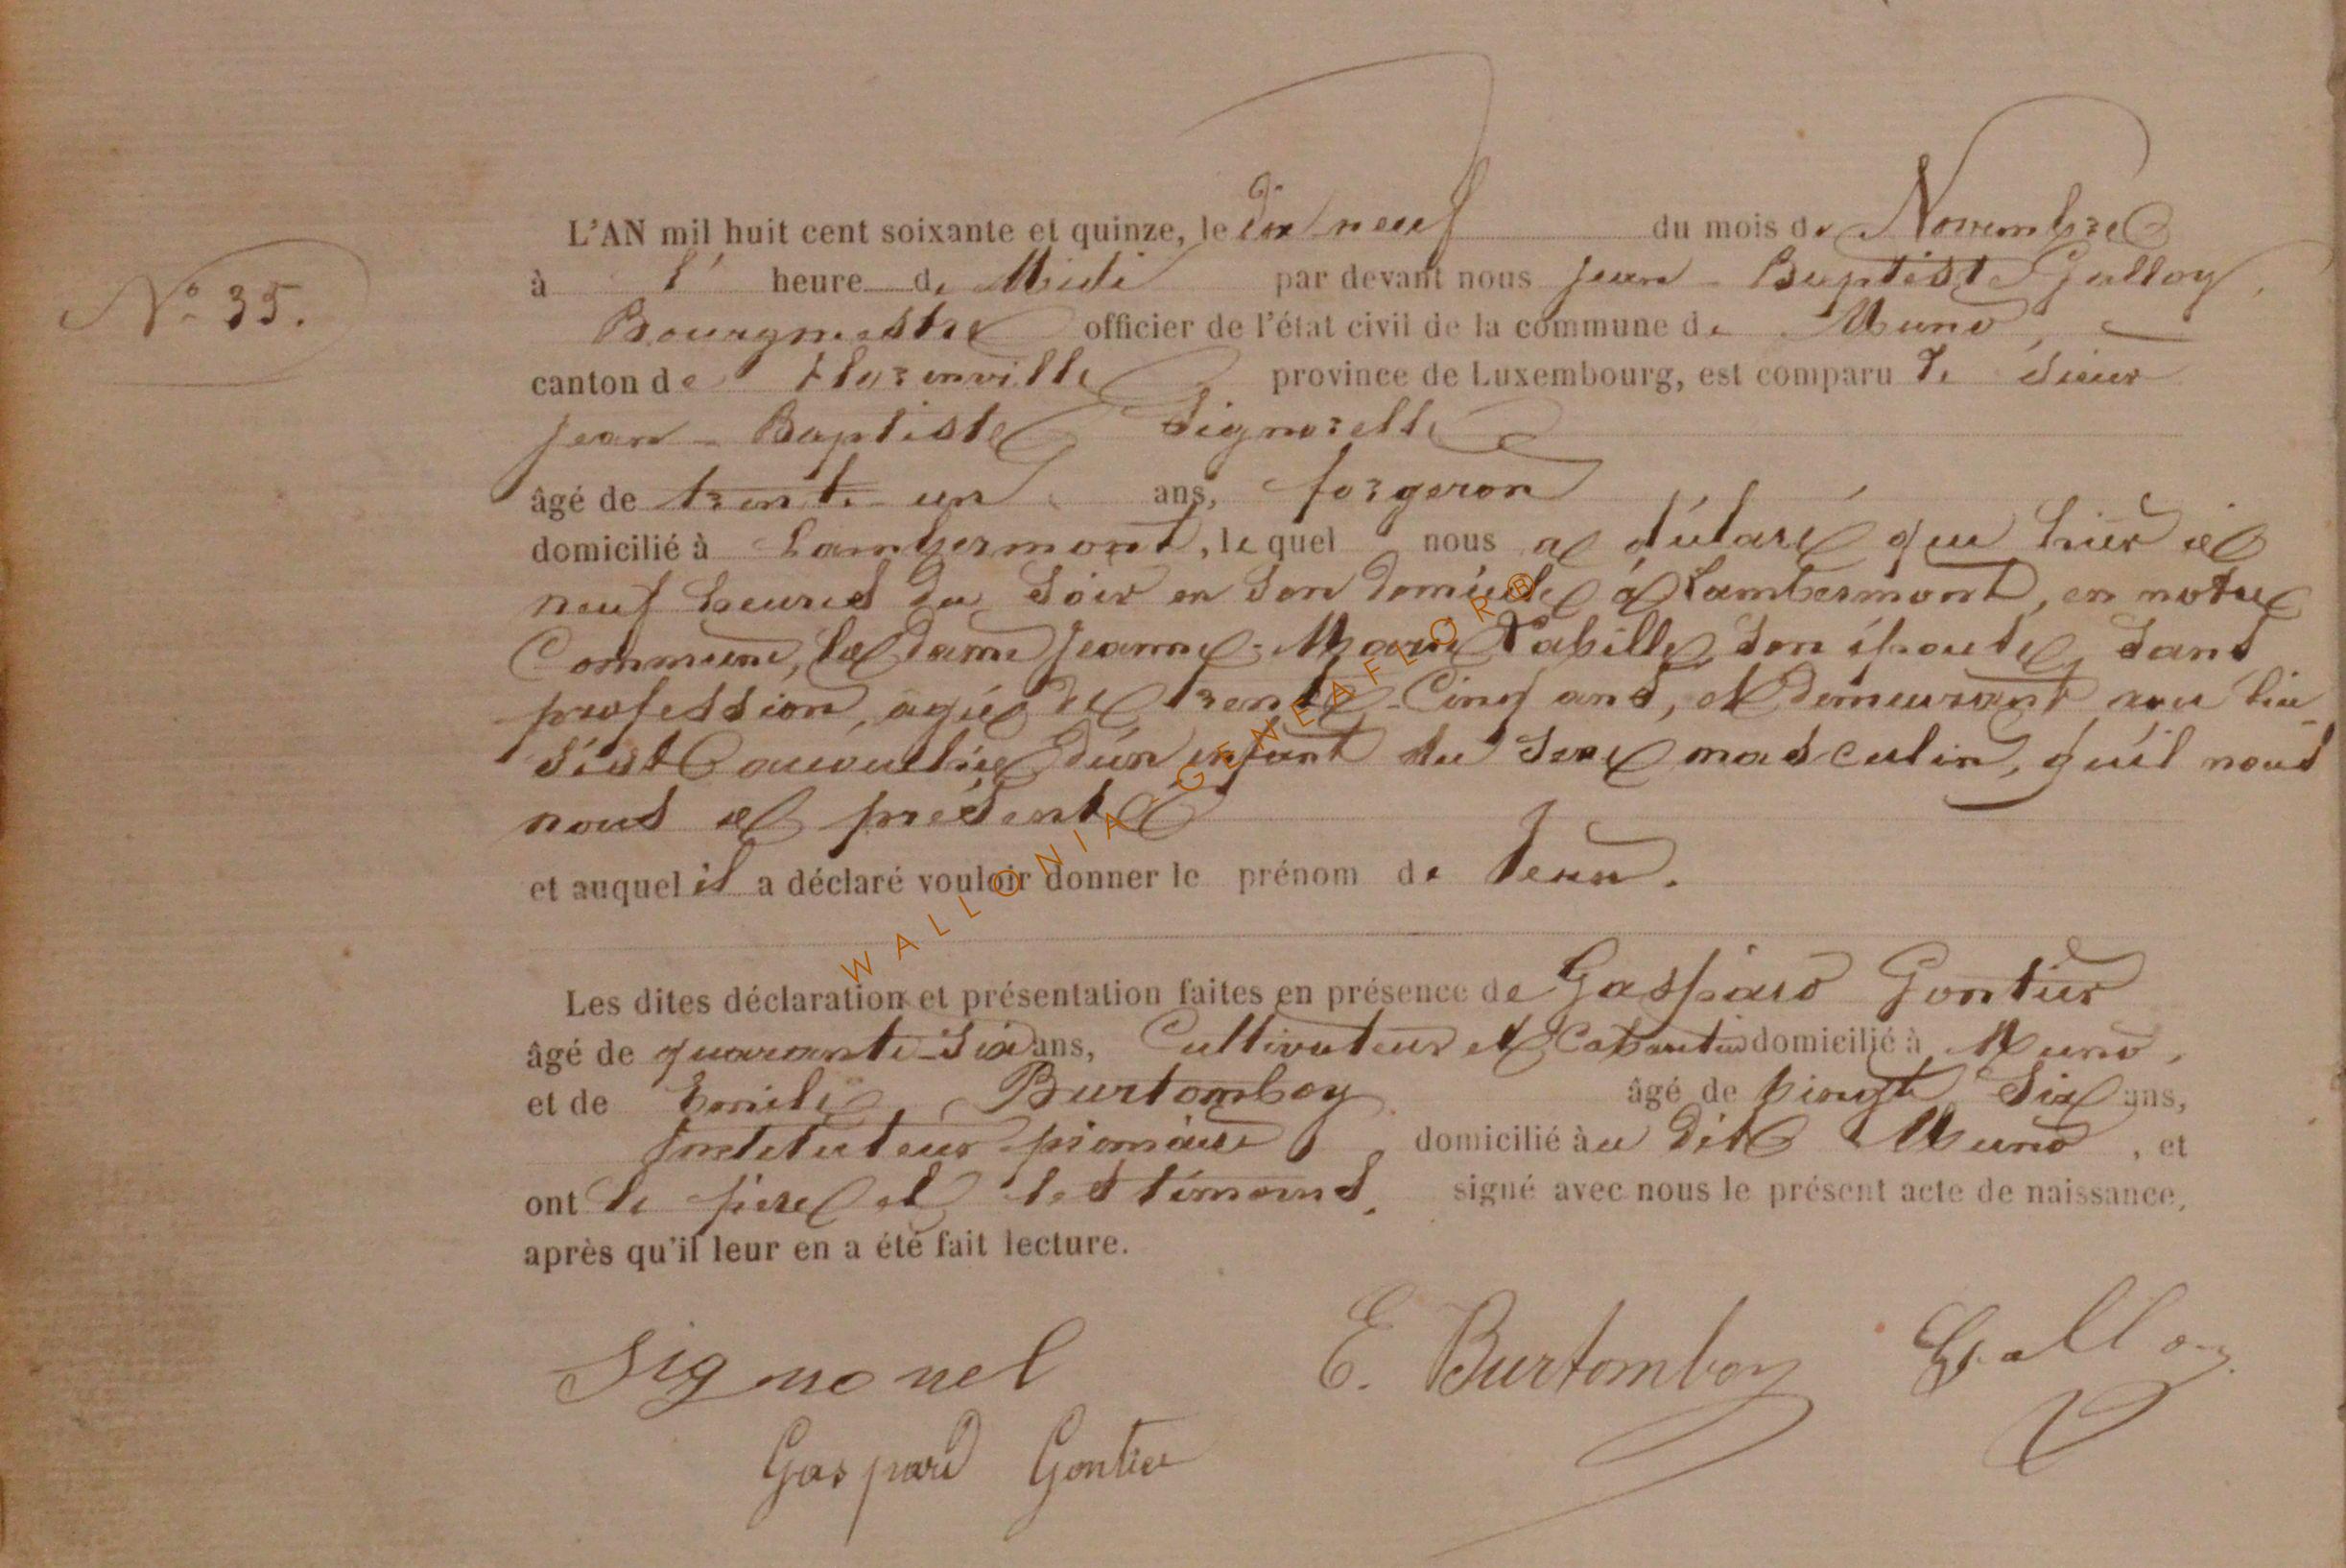 L'AN mil huit cent soixante et quinze, le dix neuf du mois de Novembre
N° 35.
à l' heure de Midi par devant nous Jean-Baptiste Galloy,
Bourgmestre officier de l'état civil de la commune de Muno,
canton de Florenville province de Luxembourg, est comparu le sieur
Jean-Baptiste Signorelle
âgé de trente un ans, forgeron
domicilié à Lambermont, le quel nous a déclaré que hier à
neuf heures du soir en son domicile à Lambermont, en notre
Commune, la dame Jeanne-Marie Labille, son épouse, sans
profession, agée de trente-cinq ans, et demeurant au lieu
s'est accouchée d'un enfant du sexe masculin, qu'il nous
nous a présenté
et auquel il a déclaré vouloir donner le prénom de Jean.
Les dites déclaration et présentation faites en présence de Gaspard Gontier
âgé de quarante-six ans, Cultivateur et Cabaretier domicilié à Muno,
et de Emile Burtomboy âgé de vingt six ans,
Instituteur primaire, domicilié au dit Muno, et
ont le père et les témoins, signé avec nous le présent acte de naissance,
après qu'il leur en a été fait lecture.
Signorel E. Burtomboy Galloy
Gaspard Gontier
WALLONIA-GENEAFLOR®